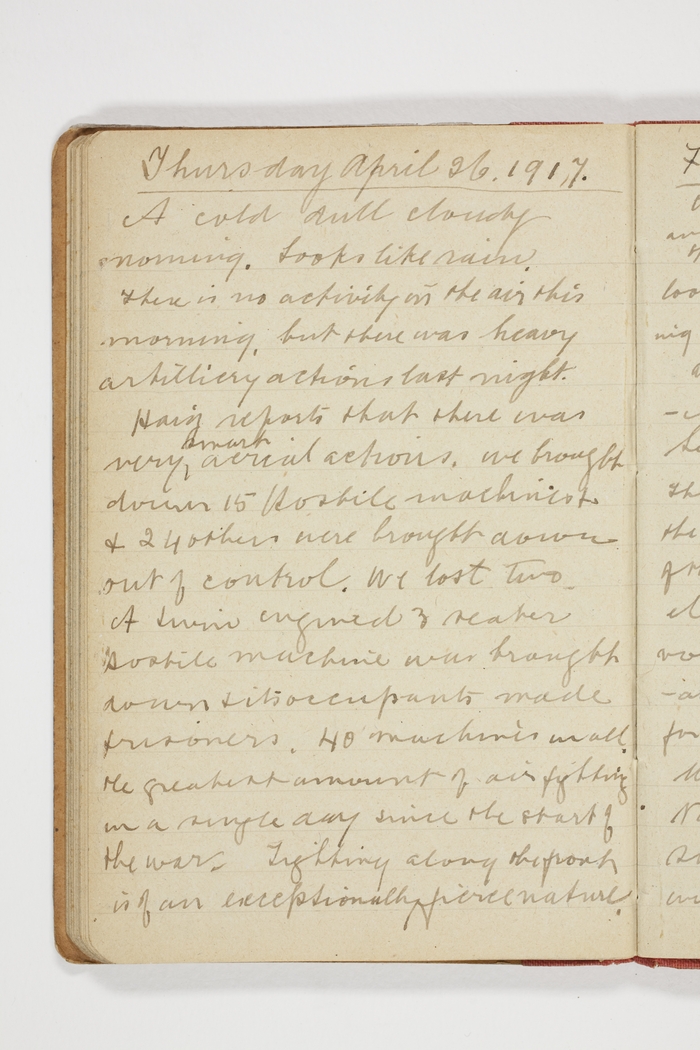 Thursday April 26. 1917.
A cold dull cloudy
morning. Looks like rain.
There is no activity in the air this
morning, but there was heavy
artilliery actions last night.
Haig reports that there was
smart
very aerial actions. we brought
down 15 Hostile machines
& 24 others were brought down
out of control. We lost two
A twin engined 3 seater
hostile machine was brought
down & its occupants made
prisoners. 40 machines in all.
the greatest amount of air fighting
in a single day since the start of
the war. Fighting along the front
is of an exceptionally fierce nature.